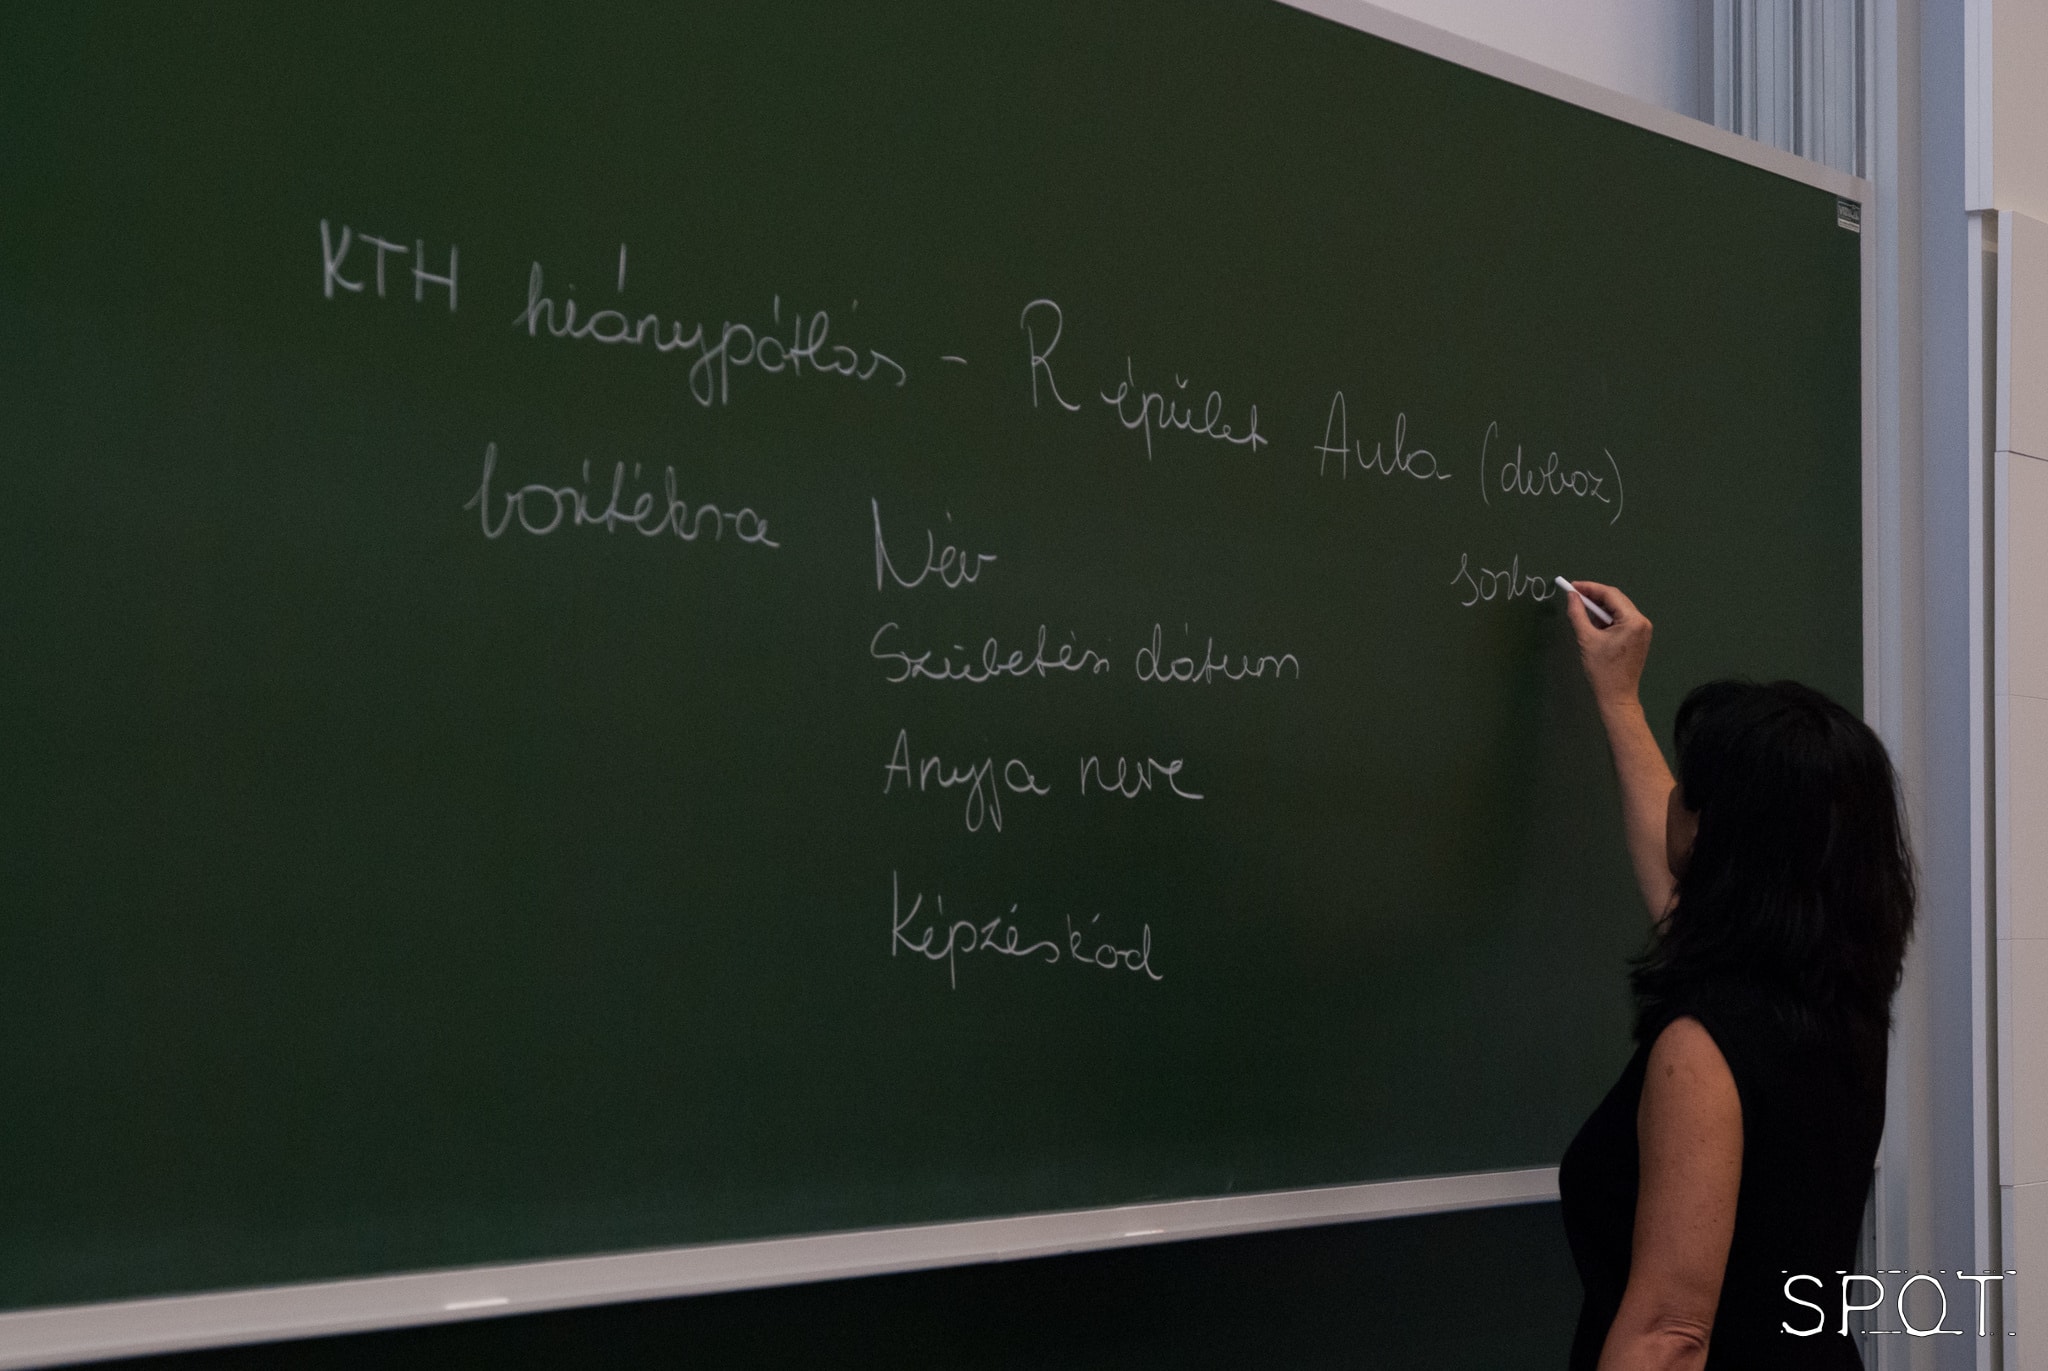 KTH hiánypótlás - R épület Aula (doboz)
borítékra Név
sorba
Születési dátum
Anyja neve
Képzéskód
SPOT